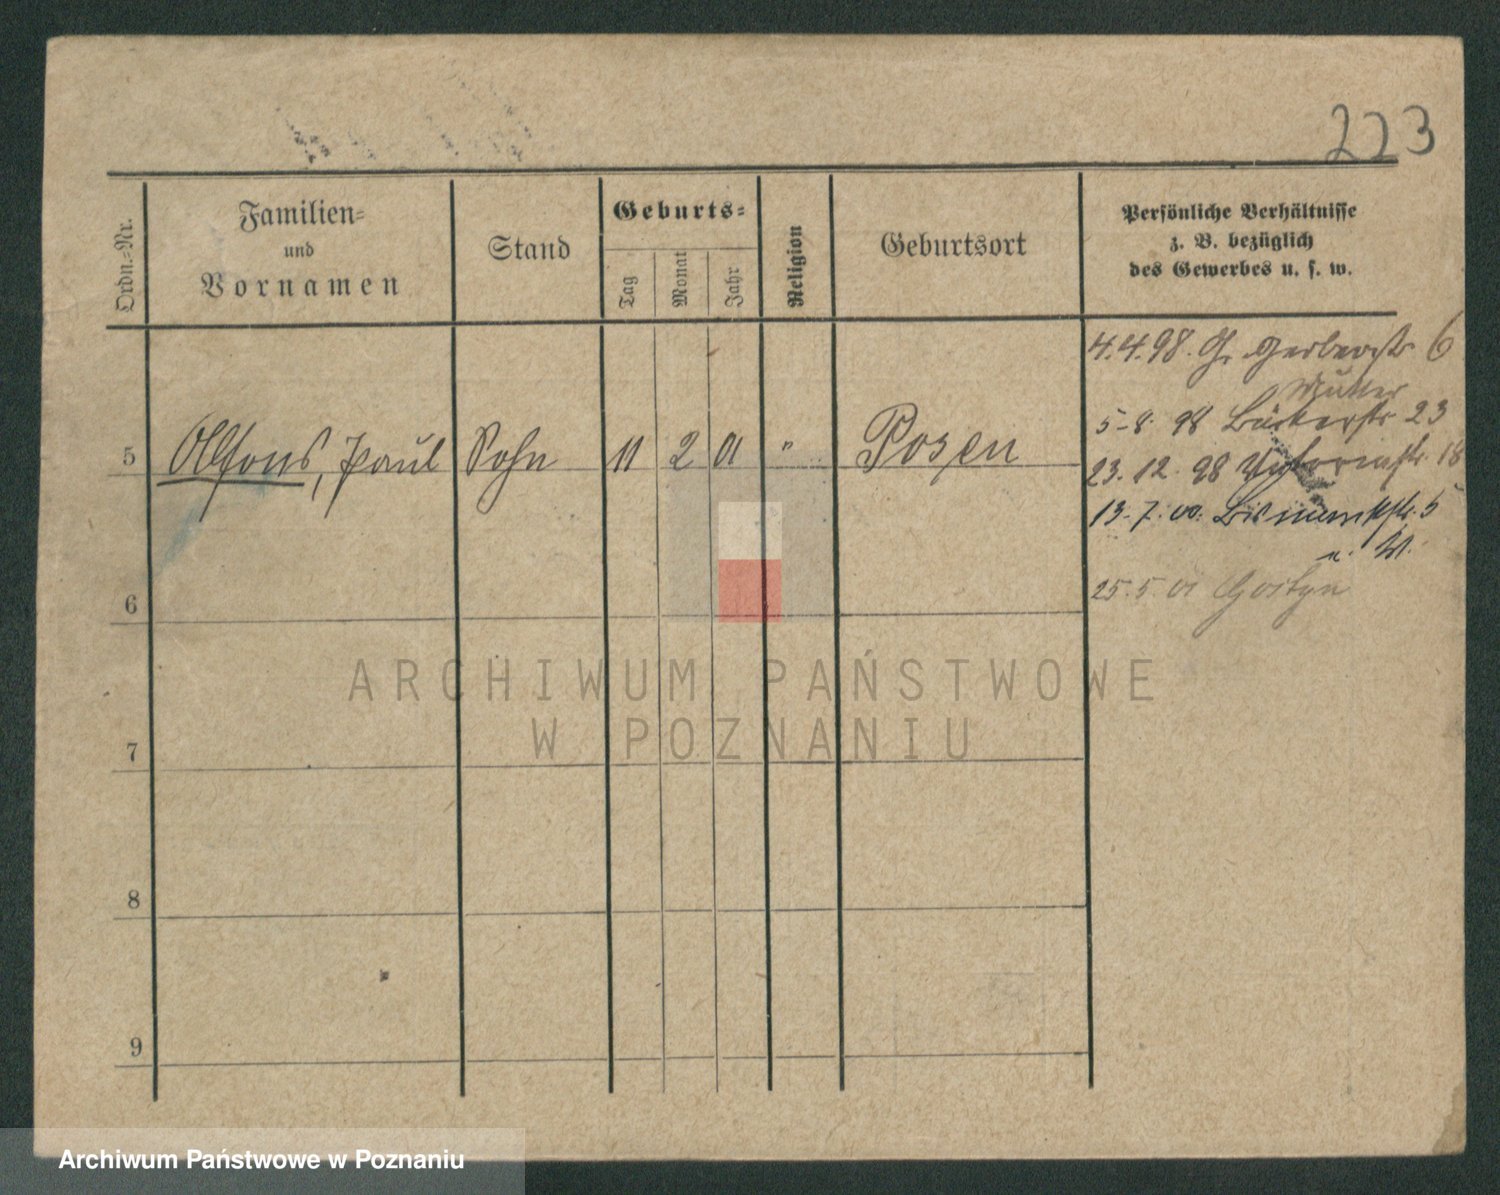 223
Ordn.-Nr.
Familien-
und
Vornamen
Stand
Geburts-
Tag
Monat
Jahr
Religion
Geburtsort
Persönliche Verhältnisse
z. B. bezüglich
des Gewerbes u. s. w.
4.4.98. Gr. Gerberstr. 6
Mutter
5-8. 98 Bäckerstr 23
5 Alfons, Paul Sohn 11 2 01 " Posen
23. 12. 98 Victoriastr. 18
13.-7. 00. Bismarckstr. 5
25.5 01 Gostyn
6
7
8
9
ARCHIWUM PAŃSTWOWE
W POZNANIU
Archiwum Państwowe w Poznaniu